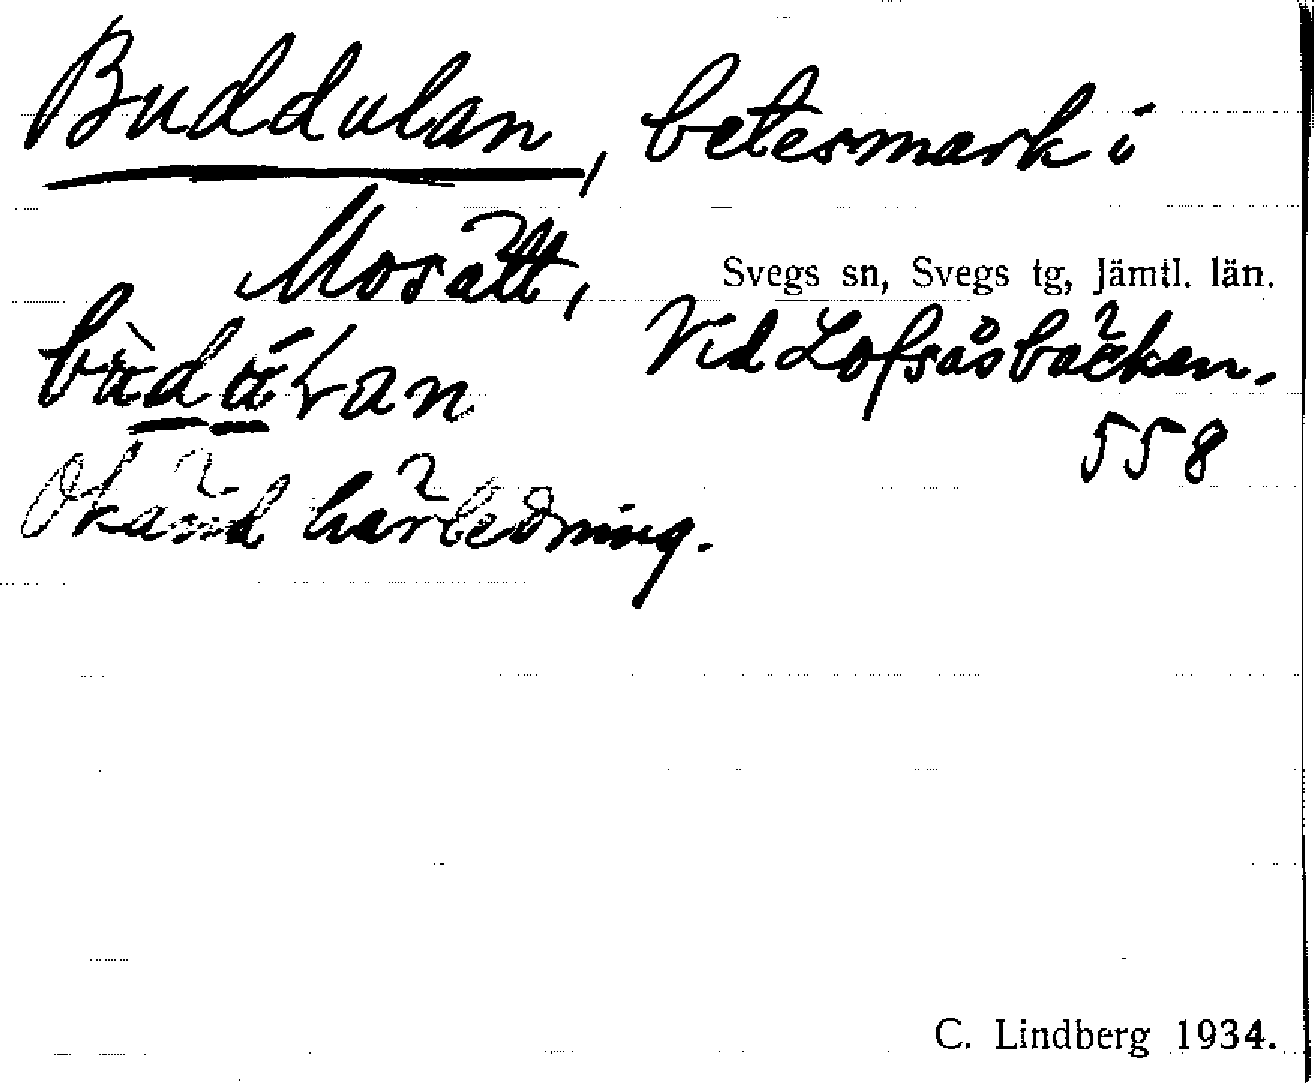 Buddulan, betesmark i
Mosätt, Svegs sn, Svegs tg, Jämtl. län.
Vid Lofsåsbäcken.
558
Okänd härledning.
C. Lindberg 1934.